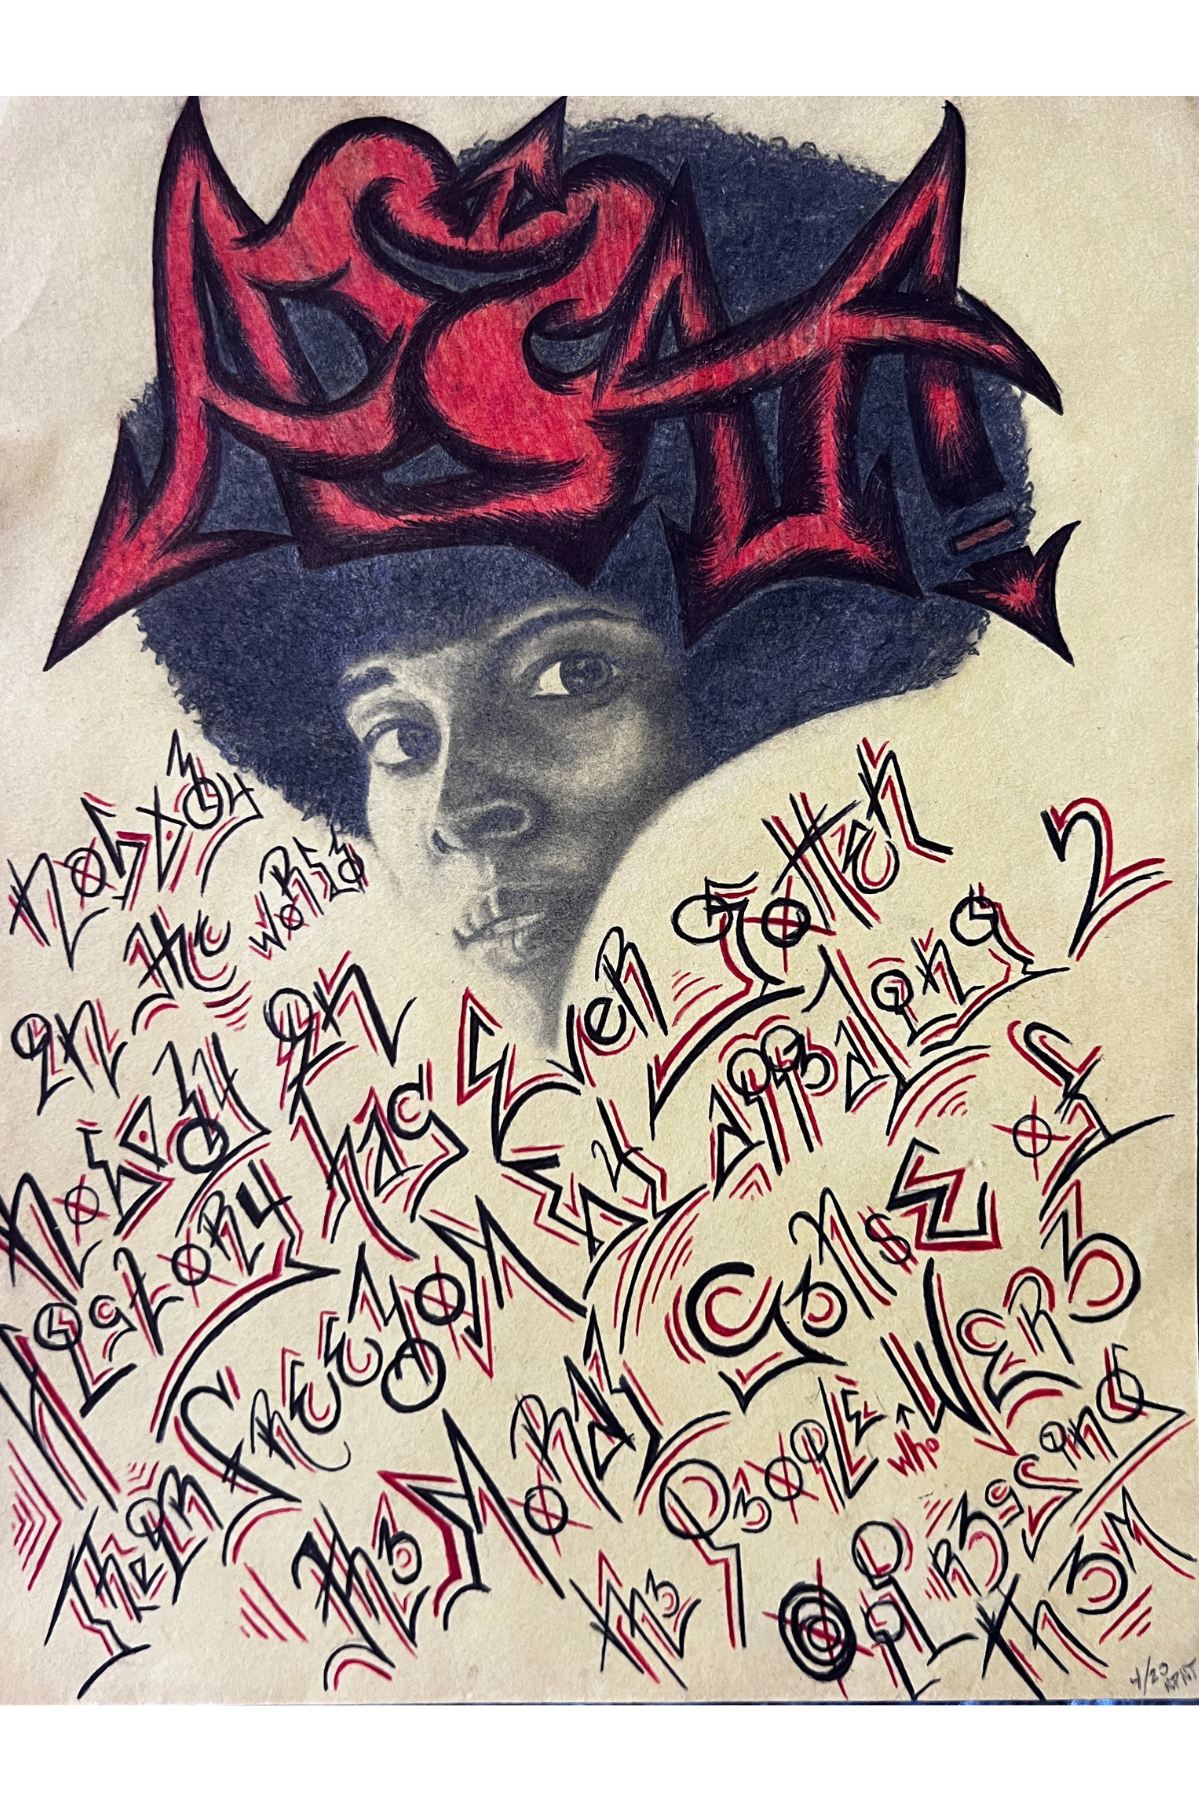 nobody
in the world
nobody in
history has ever gotten
their freedom by appealing 2
the moral sense of
the people who were
oppressing them
4/20